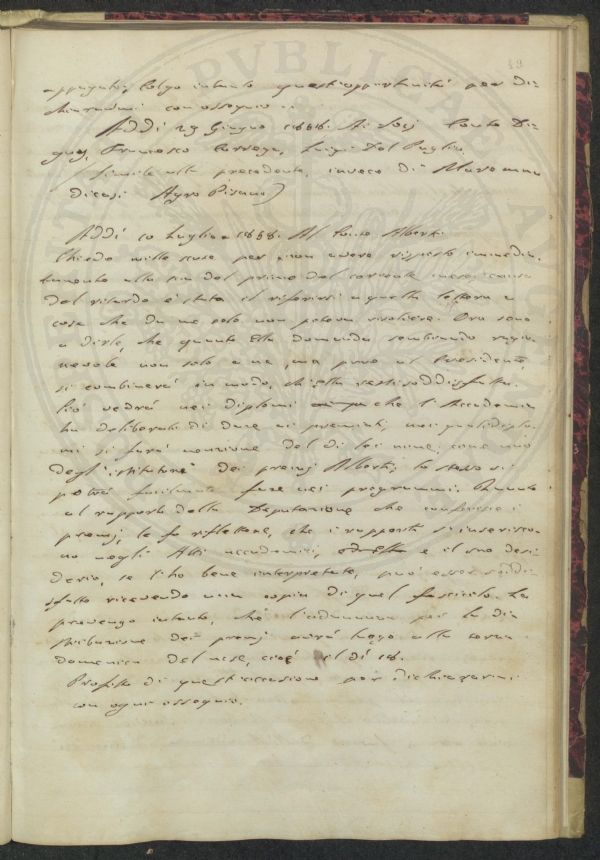 49
colgo intanto quest'opportunità per di-
chiararmi con ossequio ..
Addì 29 Giugno 1858. Ai Socj Conte De-
Francesco Luigi Dal Puglia
(Simile alla precedente, invece di Maremma
dicasi Agro Pisano)
Addì 10 Luglio 1858. Al Conte Alberti
Chiedo mille scuse per non avere risposto immedia-
tamente alla sua del primo del corrente mese: causa
del ritardo è stata il riferirsi quella lettera a
cose che da me solo non poteva risolvere. Ora sono
a dirle, che quanto Ella domanda sembrando ragio-
nevole non solo a me, ma pure al Presidente,
si combinerà in modo, ch'Ella resti soddisfatta.
Ciò vedrà nei diplomi che l'Accademia
ha deliberato di dare ai premiati, nei quali diplo-
mi si farà menzione del di Lei nome, come uno
degl'istitutori dei premj Alberti; lo stesso si
potrà facilmente fare nei programmi. Quanto
al rapporto della Deputazione che conferisce i
premj, Le fo riflettere, che i rapporti si inserisco-
no negli Atti accademici, e il suo desi-
derio, se l'ho bene interpretato, può esser soddi-
sfatto ricevendo una copia di quel fascicolo. La
prevengo intanto, che l'adunanza per la di-
stribuzione dei premj avrà luogo alla terza
domenica del mese, cioè il dì 18.
Profitto di quest'occasione per dichiararmi
con ogni ossequio.
PVBLICA